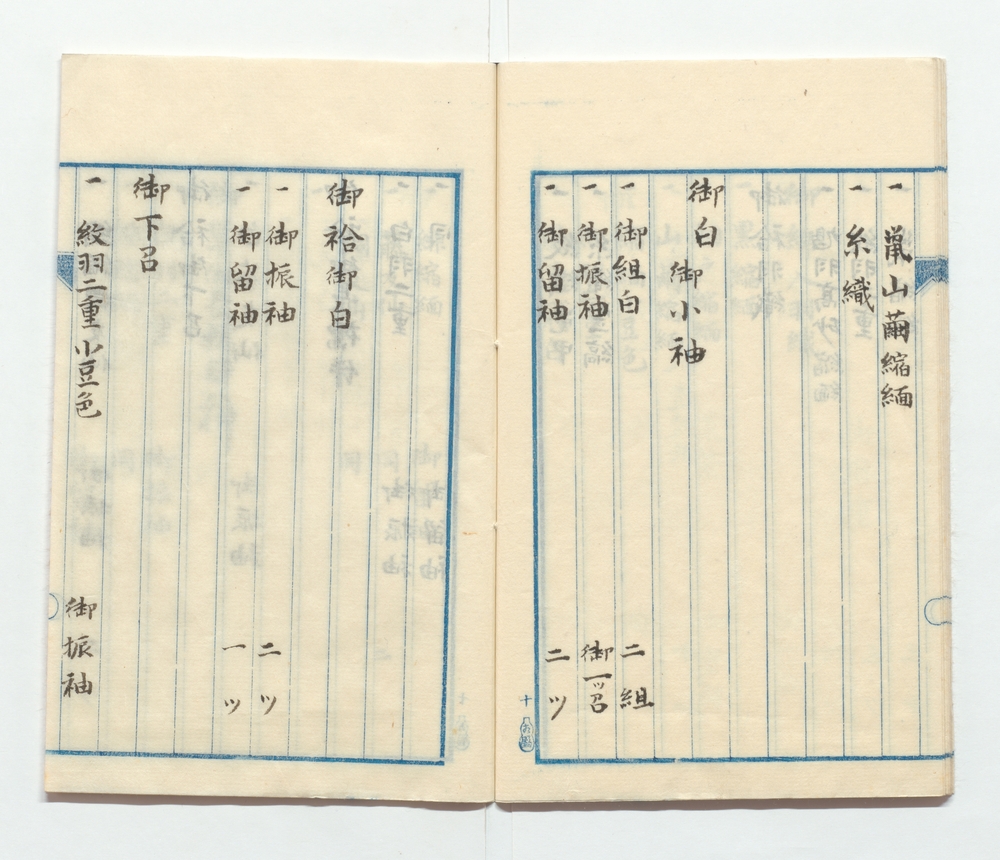 一 山繭縮緬
一 糸織
御白御小袖
一 御組白 二組
一 御振袖 御召一ッ
一 御留袖 二ッ
十
御袷御白
一 御振袖 二ッ
一 御留袖 一ッ
御下召
一 紋羽二重小豆色 御振袖